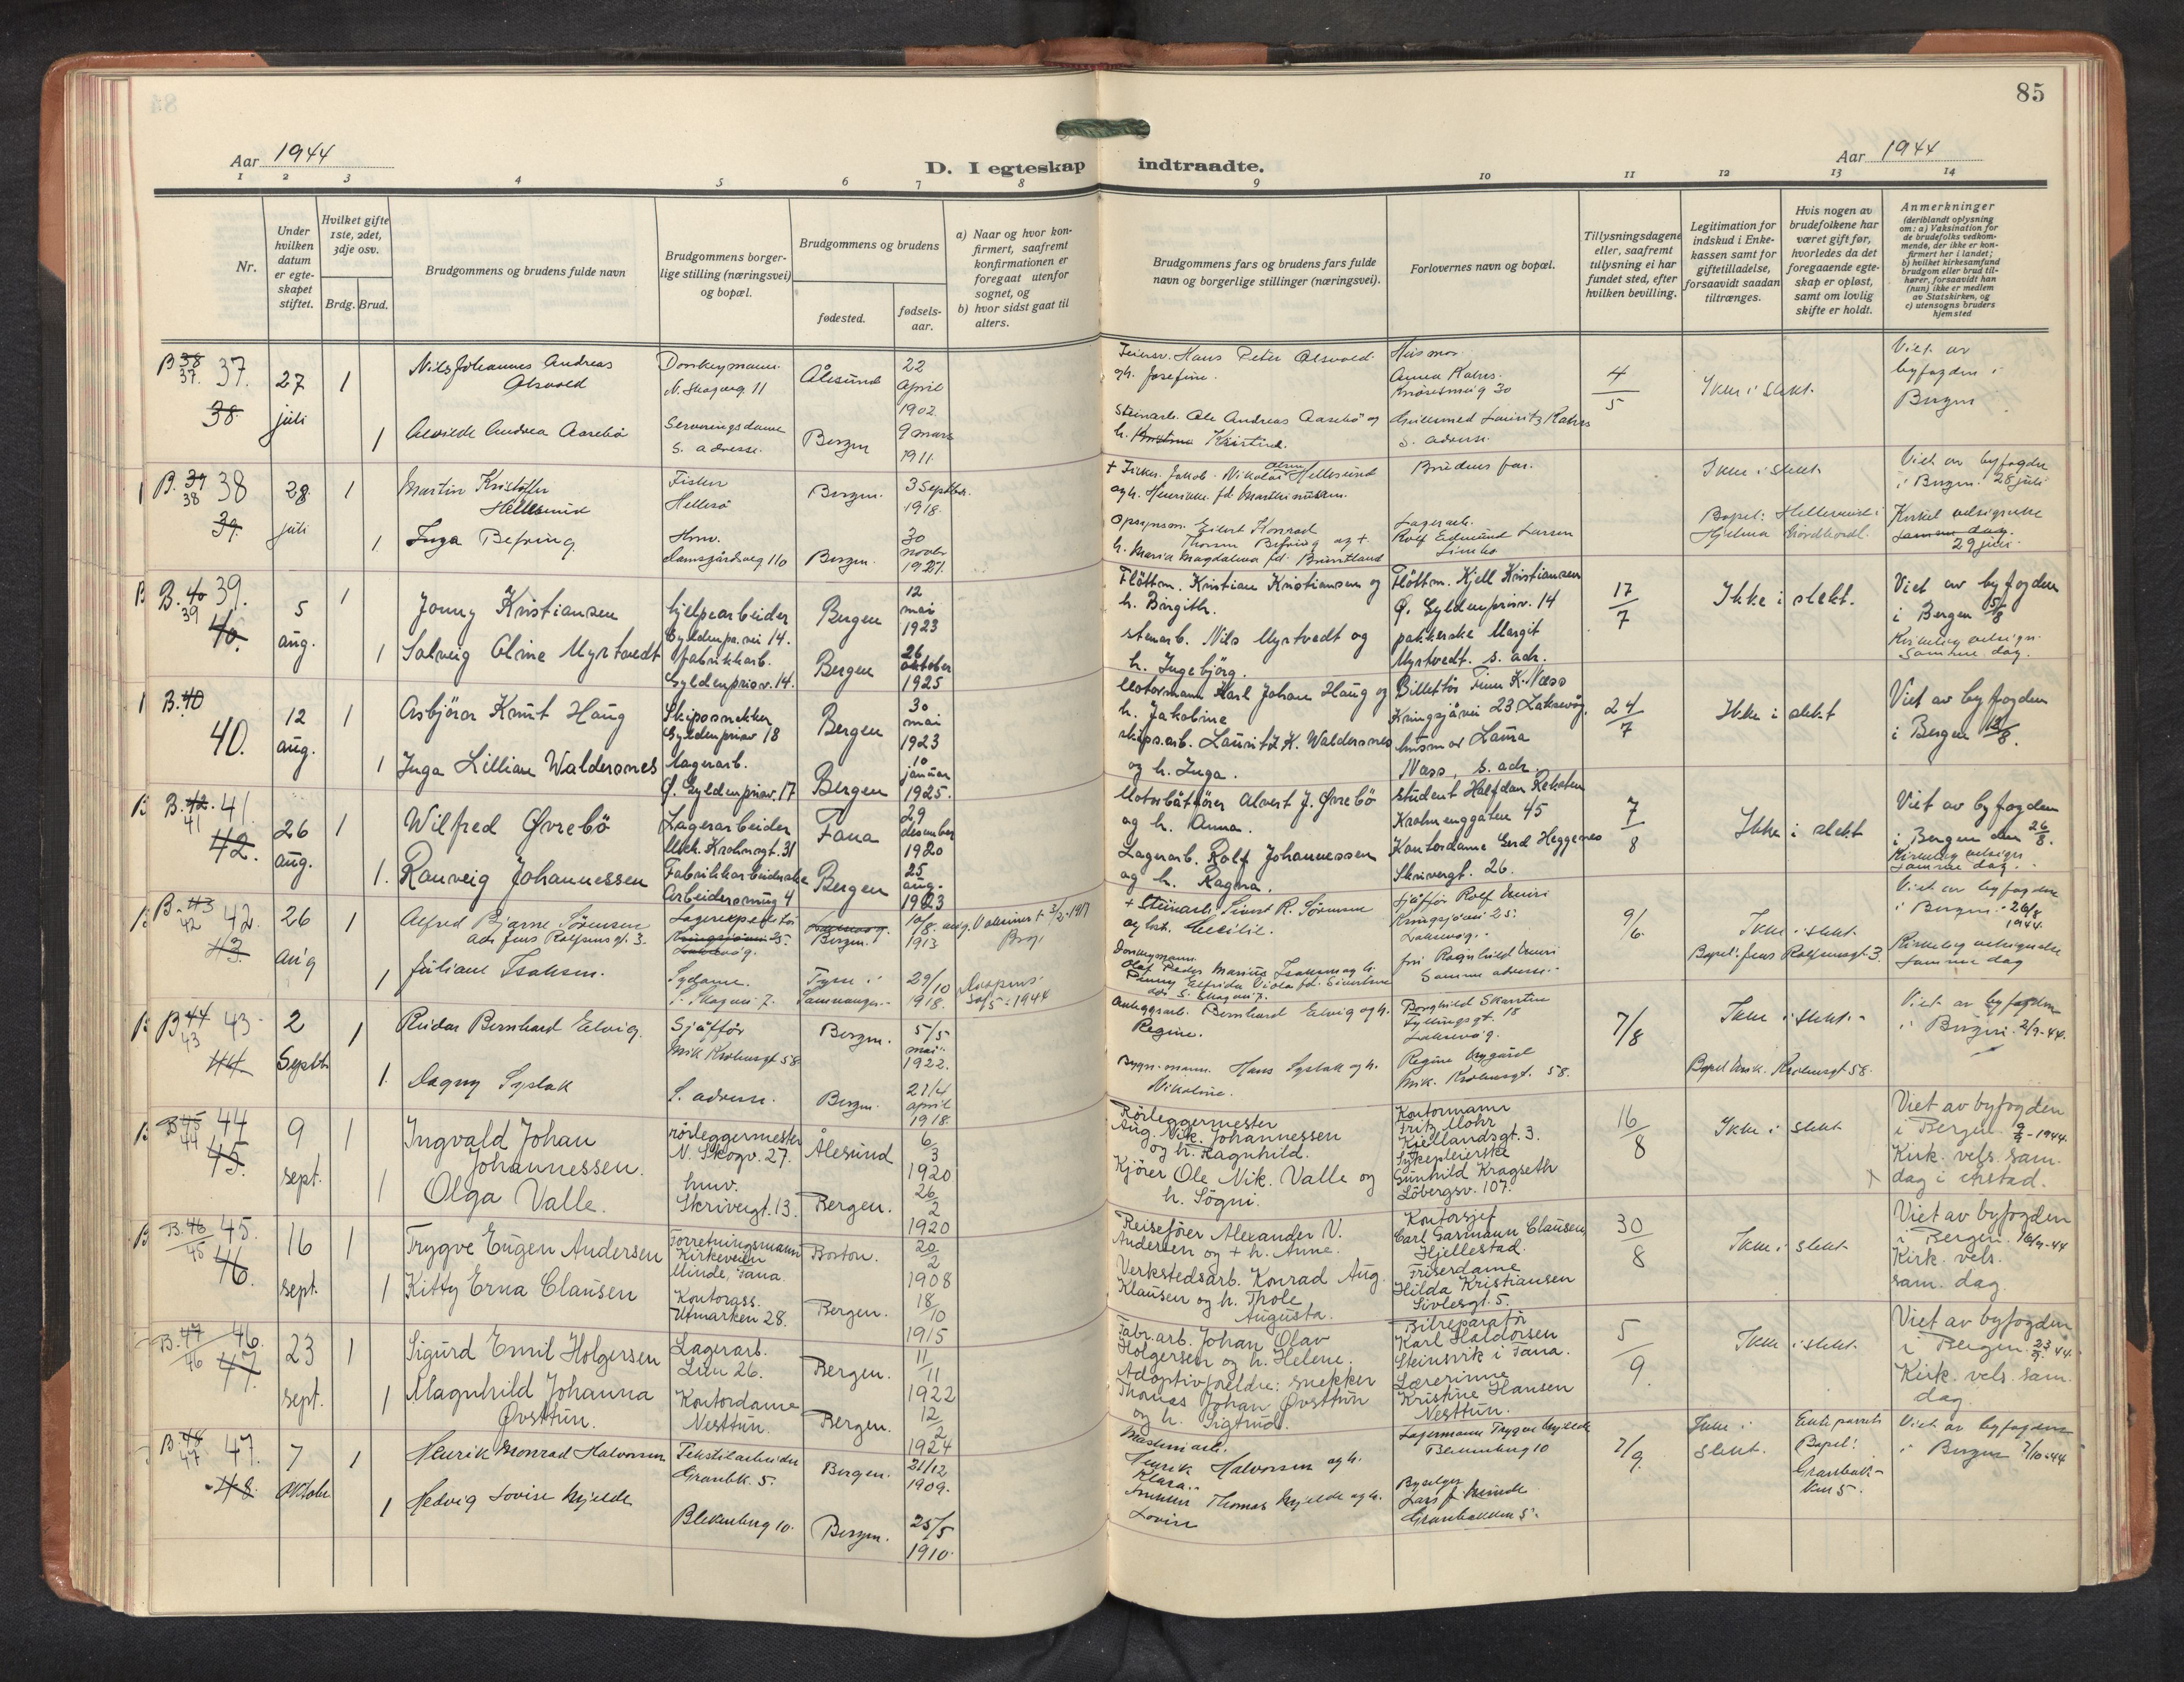 84
85
Aar 1944
D. I egteskap indtraadte.
Aar 1944
1 2 3 4 5 6 7 8 9 10 11 12 13 14
Nr.
Under hvilken datum er egte-skapet stiftet.
Hvilket gifte 1ste, 2det, 3dje osv.
Brdg. Brud.
Brudgommens og brudens fulde navn
Brudgommens borger-lige stilling (næringsvei) og bopæl.
Brudgommens og brudens
fødested.
fødsels-aar.
a) Naar og hvor kon-firmert, saafremt konfirmationen er foregaat utenfor sognet, og
b) hvor sidst gaat til alters.
Brudgommens fars og brudens fars fulde navn og borgerlige stillinger (næringsvei).
Forlovernes navn og bopæl.
Tillysningsdagene eller, saafremt tillysning ei har fundet sted, efter hvilken bevilling.
Legitimation for indskud i Enke-kassen samt for giftetilladelse, forsaavidt saadan tiltrænges.
Hvis nogen av brudefolkene har været gift før, hvorledes da det foregaaende egte-skap er opløst, samt om lovlig skifte er holdt.
Anmerkninger
(deriblandt oplysning om: a) Vaksination for de brudefolks vedkom-mende, der ikke er kon-firmert her i landet; b) hvilket kirkesamfund brudgom eller brud til-hører, forsaavidt han (hun) ikke er medlem av Statskirken, og c) utensogns bruders hjemsted
B 38 37. 37. 38
27 juli
1
Nils Johannes Andreas Alsvold
Donkeymann N. Skogveg 11
Ålesund
22 april 1902
Hans Peter Alsvold og h. Josefine.
Husmor Anna Rahrs
4/5
Ikke i slekt.
Viet av byfogden i Bergen
1
Alvilde Andrea Aasebö
Serveringsdame s. adresse.
Bergen
9 mars 1911.
Steinarb. Ole Andreas Aasebö og h. Kristine Kristine.
Lauritz Rahrs s. adresse.
B. 39 38 38 39.
28. juli
1
Martin Kristoffer Hellesund
Fisker Hellesö
Bergen.
3 Septbr. 1918.
+ Fisker Jakob Nikolai Olsen Hellesund og h. Henrikke fd. Marthinussen.
Brudens far.
Ikke i slekt.
Viet av byfogden i Bergen. 28 juli
1.
Inga Befring
Hmv. Damsgårdsveg 110
Bergen.
30 novbr 1921.
Opsynsm. Eilert Konrad Thorsen Befring og + h. Maria Magdalena fd.
Lagerarb. Rolf Edmund Larsen
Bopel: Hellesund i Hjelma Nordhordl.
Kirkel velsignelse samme dag 29 juli.
B. 40 39 39. 40.
5 aug.
1
Jonny Kristiansen
hjelpearbeider Gyldenpr. vei 14.
Bergen
12 mai 1923
Fløttm. Kristian Kristiansen og h. Birgith.
Fløttm. Kjell Kristiansen Ø. Gyldenprisv. 14
17/7
Ikke i slekt.
Viet av byfogden i Bergen 5/8
1
Solveig Aline Myrtvedt
fabrikkarb. Gyldenprisv. 14.
Bergen
26 oktober 1925
stenarb. Nils Myrtvedt og h. Ingebjörg.
pakkerske Margit Myrtvedt. s. adr.
Kirkeleg velsign. samme dag.
B. 40 40.
12 aug.
1
Asbjörn Knut Haug
Skipssnekker Gyldenprisv 18
Bergen
30 mai 1923
Motormann Karl Johan Haug og h. Jakobine
Billettör Finn K. Næss Kringsjåvei 23 Laksevåg.
24/7
Ikke i slekt
Viet av byfogden i Bergen 12/8.
1
Inga Lillian Waldersnes
lagerarb. Ø. Gyldenprisv. 17
Bergen
10 januar 1925.
skipsarb. Lauritz K. Waldersnes og h. Inga.
husmor Laura Næss, s. adr.
B. 42. 41 41. 42.
26 aug.
1
Wilfred Øvrebö
Lagerarbeider Mich. Krohnsgt. 31
Fana
29 desember 1920
Motorbåtförer Alvert J. Øvrebö og h. Anna.
student Halfdan Reksten Krohnenggaten 45
7/8
Ikke i slekt
Viet av byfogden i Bergen den 26/8.
1.
Ranveig Johannessen
Fabrikkarbeiderske Arbeidersmug 4
Bergen
25 aug. 1923
Lagerarb. Rolf Johannessen og h. Ragna.
Kontordame Gerd Heggenes Skrivergt. 26.
Kirkeleg velsign. samme dag.
B. 43 42 42. 43.
26 aug
1
Alfred Bjarne Sörensen adr Jens Rolfsensgt. 3.
Lagerexpeditör Kringsjåvei 25. Laksevåg.
Laksevåg. Bergen.
10/8 1913
+ Steinarb: Simet R. Sörensen og hst. Cecilie.
Sjåfför Rolf Kringsjåvei 25. Laksevåg.
9/6.
Ikke i slekt. Bopel: Jens Rolfsensgt. 3.
Viet av byfogden i Bergen. 26/8 1944.
1
Juliane Isaksen.
Sydame. S. Skogvei 7.
Samnanger.
29/10 1918.
Donkeymann Olaf Peder Marius Isaksen og h. Penny Elfrida Viola fd. adr S. Skogvei 7.
fru Ragnhild Samme adresse.
Kirkeleg velsignelse samme dag
B 44 43 43 44
2 Septbr
1
Reidar Bernhard Elvig
Sjåfför Mik Krohnsgt 58
Bergen.
5/5 mai 1922.
Anleggsarb. Bernhard Elvig og h. Regine.
Borghild Skarsten Fyllingsgt. 18 Laksevåg.
7/8
Ikke i slekt.
Viet av byfogden i Bergen. 2/9-44.
1.
Dagny Syslak
S. adresse.
Bergen.
21/4 april 1918.
Bygn.mann. Hans Syslak og h. Nikoline.
Regine Nygård Mik. Krohnsgt. 58.
Bopel Mik. Krohnsgt 58.
B 45 44 44 45.
9 sept.
1
Ingvald Johan Johannessen.
rörleggermester N. Skogv. 27.
Ålesund
6/3 1920
Rörleggermester Aug. Nik. Johannessen og h. Ragnhild.
Kontormann Fritz Mohr Kiellandsgt. 3.
16/8
Ikke i slekt
Viet av byfogden i Bergen 9/9-1944.
1
Olga Valle.
hmv. Skrivergt. 13.
Bergen.
26/2 1920
Kjörer Ole Nik. Valle og h. Sögni.
Sykepleierske Gunhild Kragseth Löbergsv. 107.
Kirk. vels. sam. dag i Årstad.
B. 46 45 45. 46.
16 sept.
1
Trygve Eugen Andersen
Forretningsmann Kirkeveien Minde, Fana.
Boston.
20/2 1908
Reiseförer Alexander V. Andersen og + h. Anne.
Kontorsjef Carl Garmann Clausen Hjellestad.
30/8
Ikke i slekt
Viet av byfogden i Bergen. 16/9-44
1
Kitty Erna Clausen
Kontorass. Utmarken 28.
Bergen.
18/10 1915
Verkstedsarb. Konrad Aug. Klausen og h. Thole Augusta.
Friserdame Hilda Kristiansen Sivlesgt. 5.
Kirk. vels. sam. dag
B. 47 46 46. 47.
23 sept.
1
Sigurd Emil Holgersen
Lagerarb. Lien 26.
Bergen.
11/11 1922
Fabr.arb. Johan Olav Holgersen og h. Helene.
Bilreparatör Karl Haldorsen Steinsvik i Fana.
5/9.
Ikke i slekt.
Viet av byfogden i Bergen. 23/9 44.
1
Magnhild Johanna Øvsttun.
Kontordame Nesttun.
Bergen.
12/2 1924
Adoptivforeldre: snekker Thomas Johan Øvsttun og h. Sigtrud.
Lærerinne Kristine Hansen Nesttun.
Kirk. vels. sam. dag.
B. 48 47 47. 48.
7 oktobr
1
Henrik Monrad Halvorsen
Tekstilarbeider Granbk. 5.
Bergen.
21/12 1909.
Maskinarb. Henrik Halvorsen og h. Klara.
Lagermann Trygve Mjelde Blekenberg 10
7/9
Ikke i slekt.
Bopel: Granbakken 5.
Viet av byfogden i Bergen 7/10-44
1
Hedvig Lovise Mjelde
Blekenberg 10.
Bergen.
25/5 1910.
Snekker Thomas Mjelde og h. Lovise
Byselger Lars J. Granbakken 5.